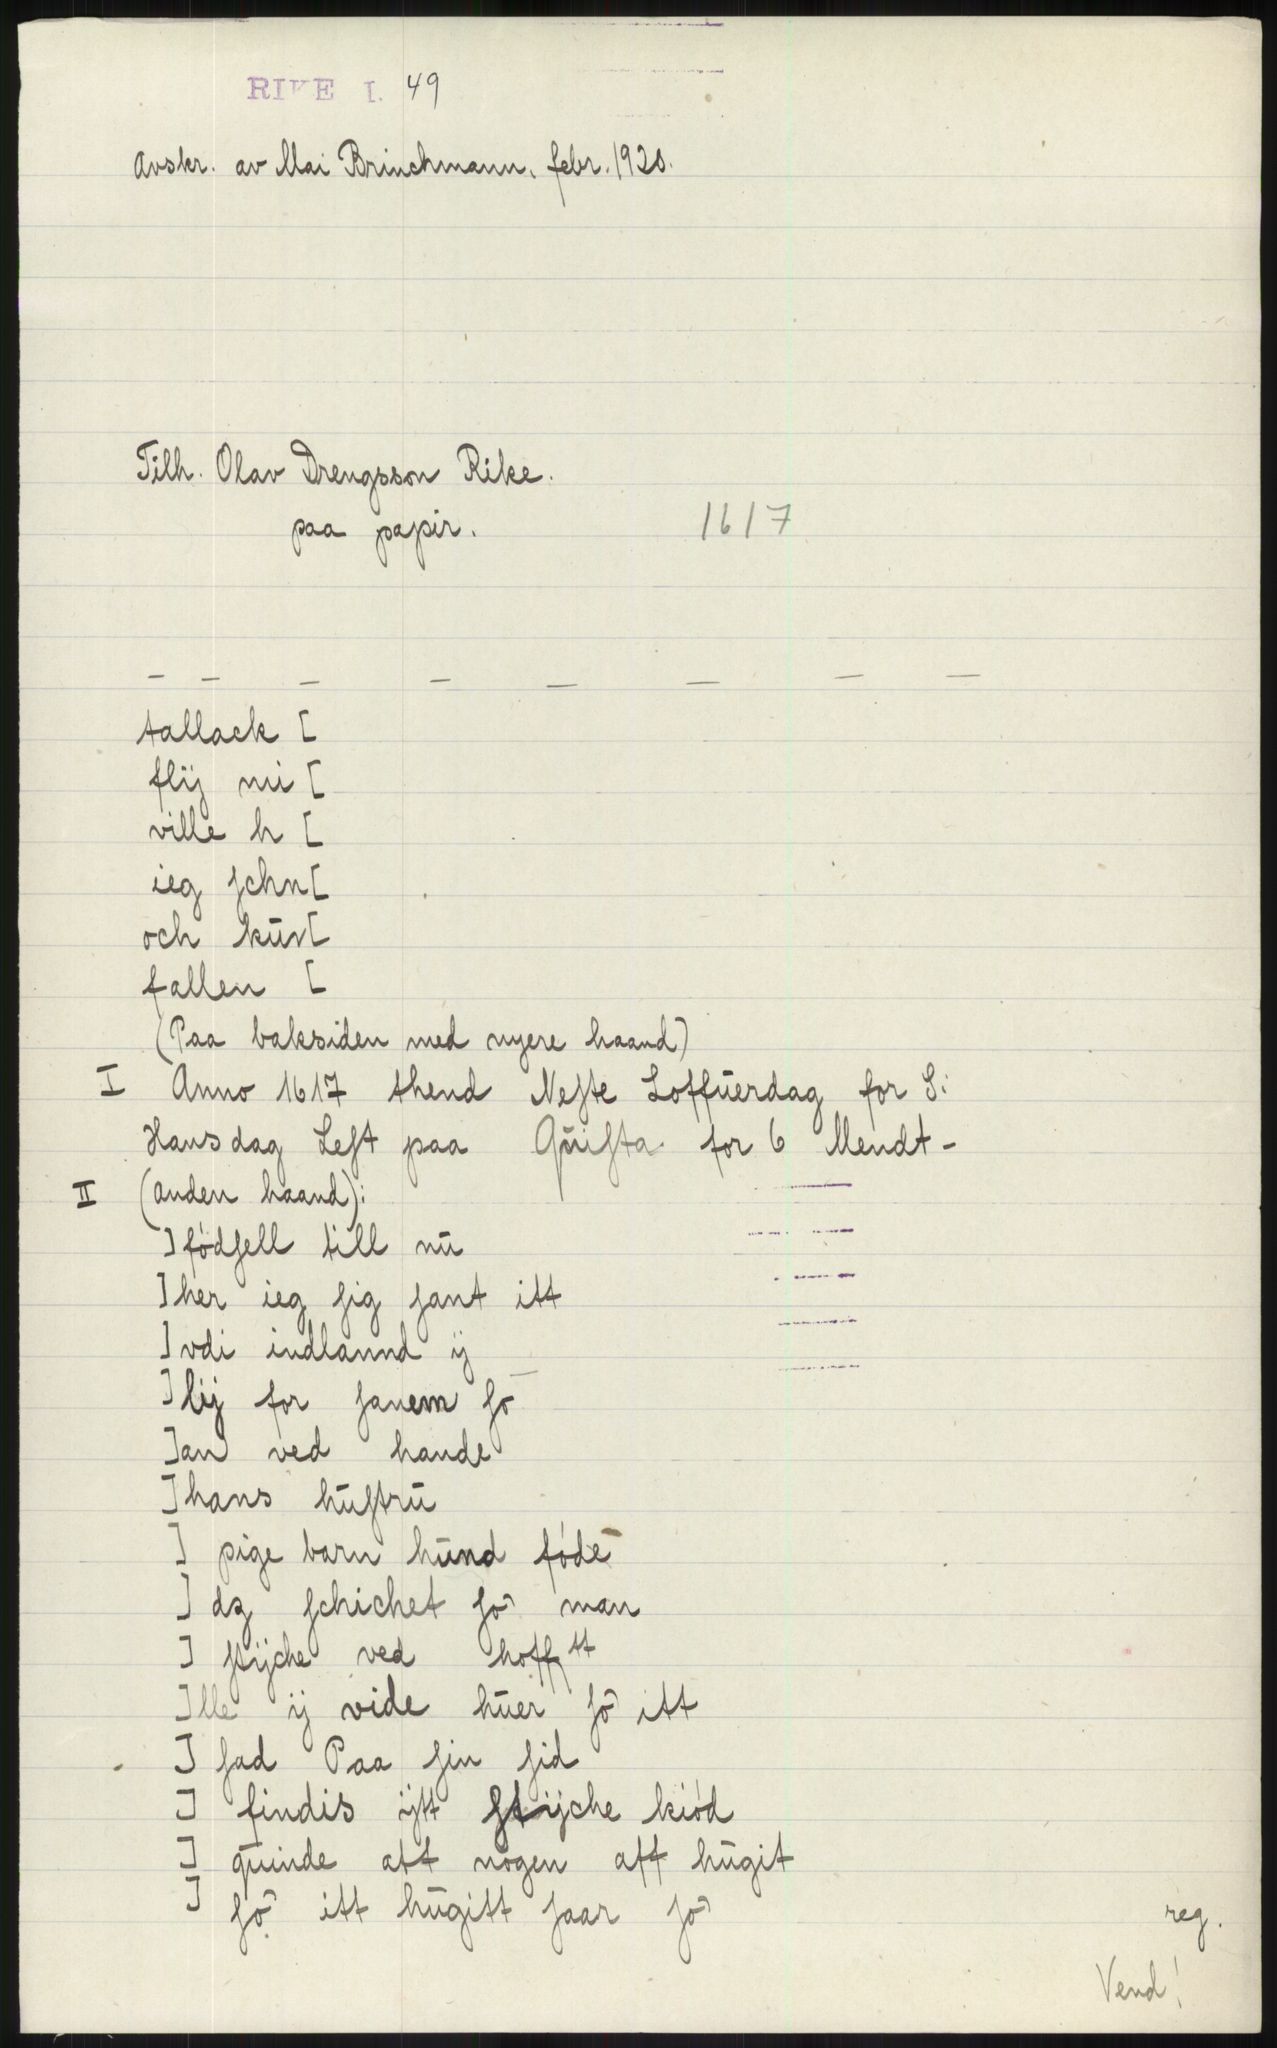 RIKE I. 49
Avskr. av Mai Brinchmann, febr. 1920.
Tilh. Olav Drengsson Rike.
paa papir. 1617
— — — — — — — —
tallack [
flÿ mi [
ville h [
ieg ſchn[
och kūn[
fallen [
(Paa baksiden med nyere haand)
I Anno 1617 thend Neſte Loffūerdag for S:
Hansdag Leſt paa Qūiſta for 6 Mendt -
II (anden haand):
] fódſell till nū
] her ieg ſig ſant itt
] vdi indlannd ÿ
] lÿ for ſanem ſō
] an ved hande
] hans hūſtrū
] pige barn hūnd fóde
] dz ſchichet ſō man
] ſtÿche ved hoff tt
] lle ÿ vide hūer ſō itt
] ſad Paa ſin ſid
] findis ÿtt ſtÿche kiód
] qūinde att nogen aff hūgit
] ſō itt hūgitt ſaar ſō
reg.
Vend!